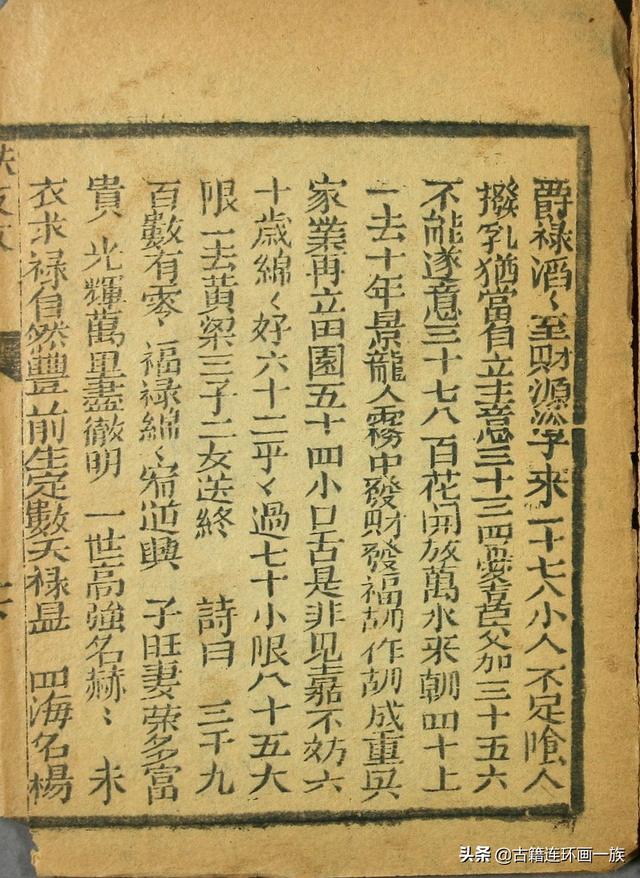 爵禄滔〻至財源子來二十七八小人不足陰人
撥乳猶當自立主意三十三四憂喜交加三十五六
不能遂意三十七八百花開放萬水来朝四十上
一去十年景龍入霧中發財發福胡作胡成重興
家業再立田園五十四小口舌是非見嘉不妨六
十歲綿〻好六十二乎〻過七十小限八十五大
限一去黄梁三子二女送終 詩曰 三千九
百數有零〻福禄綿〻道興 子旺妻荣多富
貴 光輝萬里盡徹明 一世高強名赫〻 未
衣求禄自然豐前生定數天禄显 四海名楊
头条 @古籍连环画一族